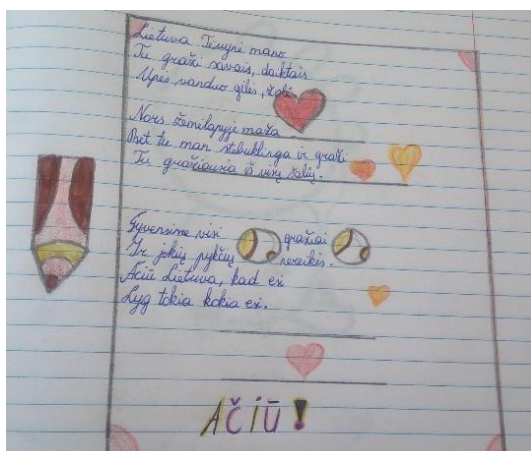 Lietuva Tėvynė mano
Tu graži savais, daiktais
Upės vanduo gilės, žalė
Nors žemėlapyje maža
Bet tu man stebuklinga ir graži
Tu gražiausia iš visų šalių.
Gyvensime visi gražiai
Ir jokių pykčių nereikės.
Ačiū Lietuva, kad esi
Lyg tokia kokia esi.
AČIŪ!